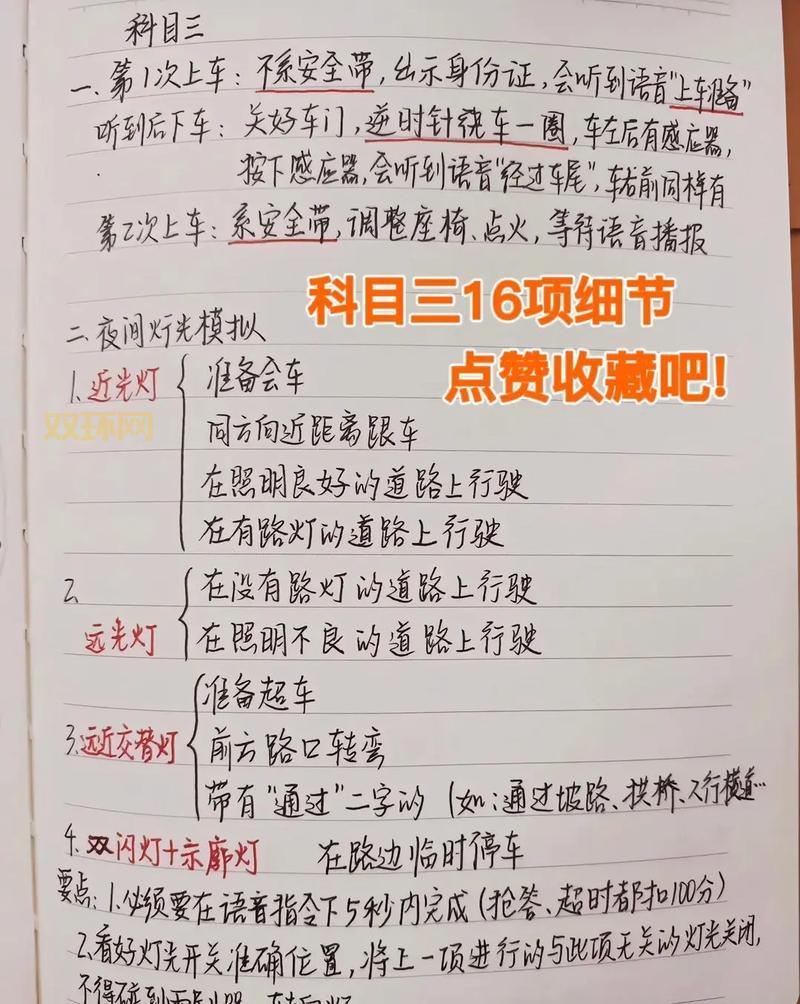 科目三
一、第1次上车：不系安全带，出示身份证，会听到语音"上车准备"
听到后下车：关好车门，逆时针绕车一圈，车左后有感应器，
按下感应器，会听到语音"经过车尾"，车右前同样有
第2次上车：系安全带，调整座椅、点火，等待语音播报
科目三16项细节
点赞收藏吧！
二、夜间灯光模拟
1.近光灯
准备会车
同方向近距离跟车
在照明良好的道路上行驶
在有路灯的道路上行驶
双环网
2.
远光灯
在没有路灯的道路上行驶
在照明不良的道路上行驶
3.远近交替灯
准备超车
前方路口转弯
带有"通过"二字的（如：通过坡路、拱桥、人行横道…
4.双闪灯+示廓灯 在路边临时停车
要点：1.必须要在语音指令下5秒内完成（抢答、超时都扣100分）
2.看好灯光开关准确位置，将上一项进行的与此项无关的灯光关闭，
不得碰到雨刮器、转向灯